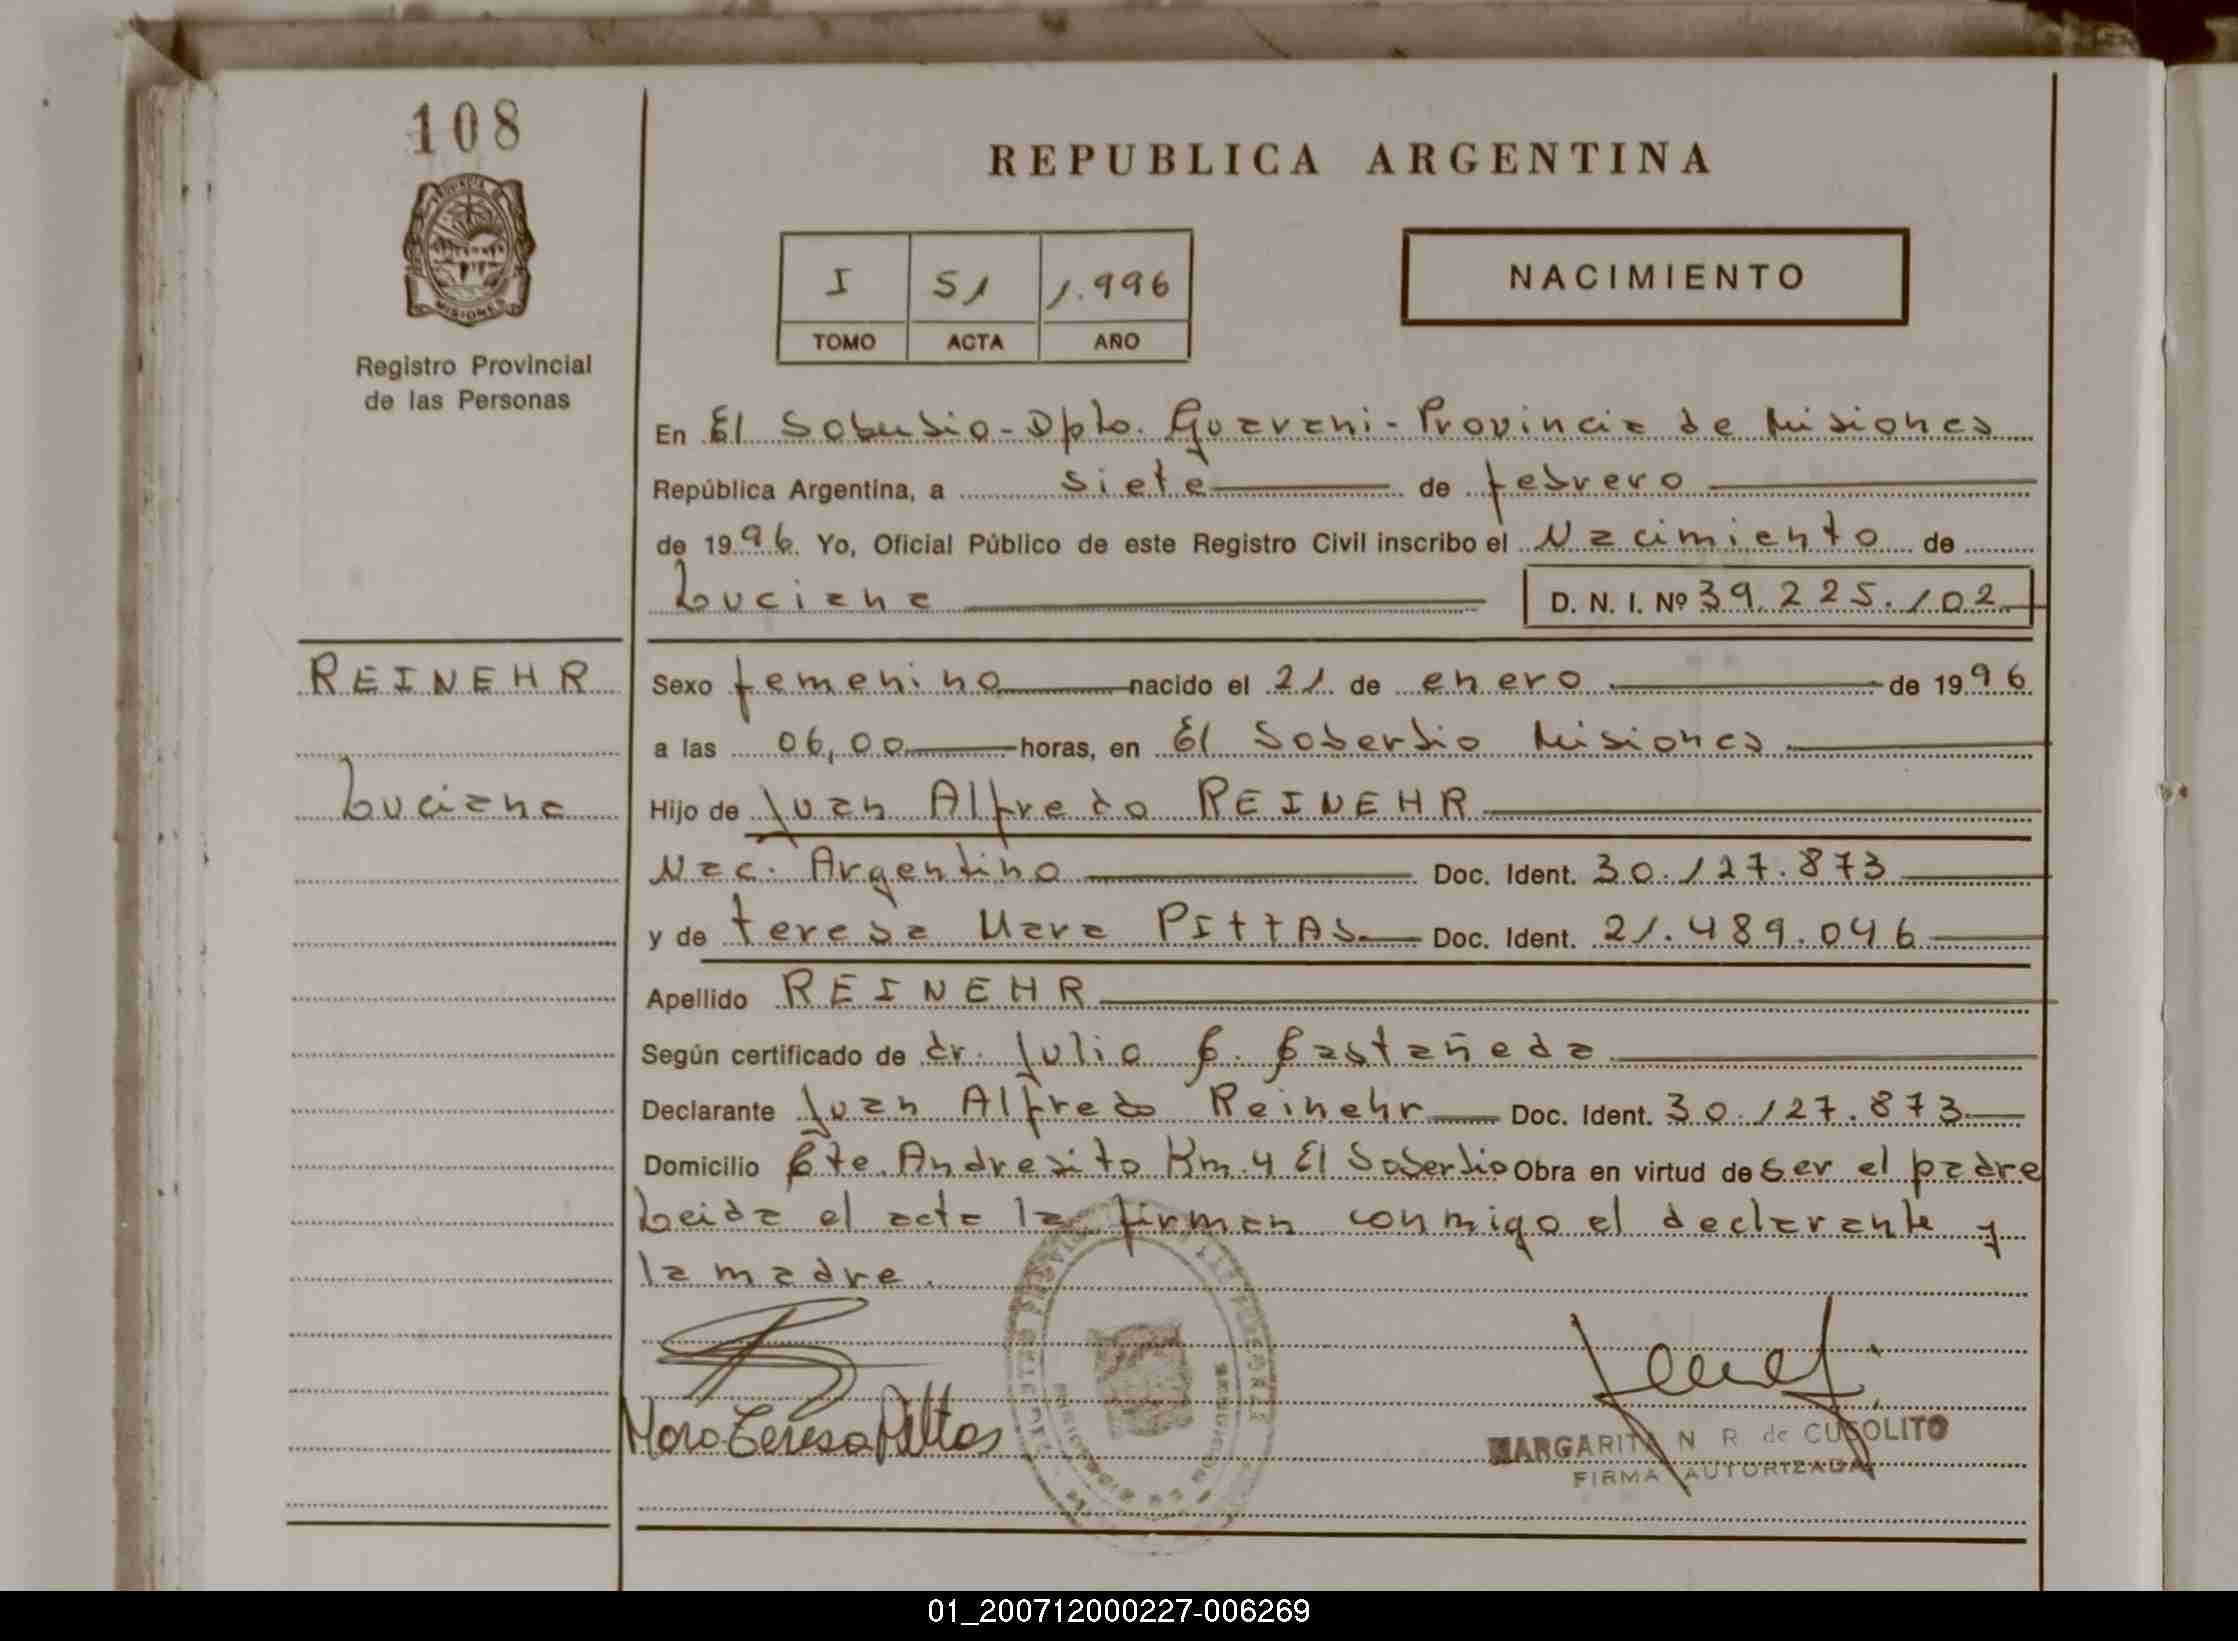 108
REPUBLICA ARGENTINA
I 51 1.996
TOMO ACTA AÑO
NACIMIENTO
MISIONES
Registro Provincial
de las Personas
En El Soberbio - Dpto. Guarani - Provincia de Misiones
República Argentina, a siete de febrero
de 1996. Yo, Oficial Público de este Registro Civil inscribo el Nacimiento de
Luciana D. N. I. Nº 39.225.102
REINEHR
Luciana
Sexo femenino nacido el 21 de enero de 1996
a las 06,00 horas, en El Soberbio Misiones
Hijo de Juan Alfredo REINEHR
Nac. Argentino Doc. Ident. 30.127.873
y de teresa Mara PITTAS Doc. Ident. 21.489.046
Apellido REINEHR
Según certificado de dr. Julio C. Castañeda
Declarante Juan Alfredo Reinehr Doc. Ident. 30.127.873
Domicilio Cte. Andresito Km. 4 El Soberbio Obra en virtud de ser el padre
Leida el acta la firman conmigo el declarante y
la madre.
Mara Teresa Pittas
MARGARITA N R de CUSOLITO
FIRMA AUTORIZADA
01_200712000227-006269